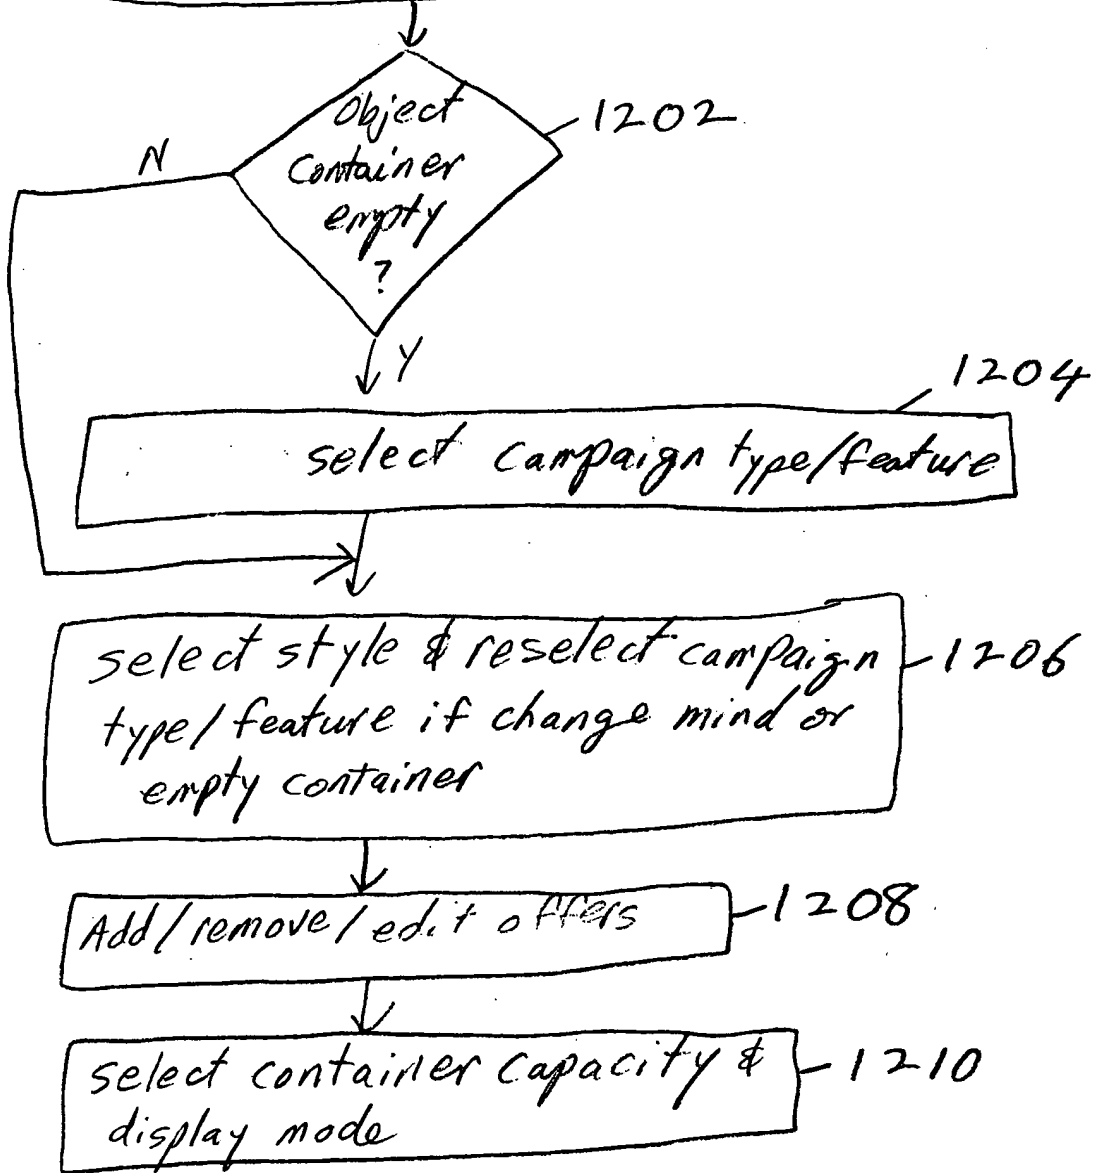 Object
Container
empty
?
1202
N
Y
1204
select campaign type/feature
select style & reselect campaign
type/feature if change mind or
empty container
1206
Add/remove/edit offers
1208
select container capacity &
display mode
1210